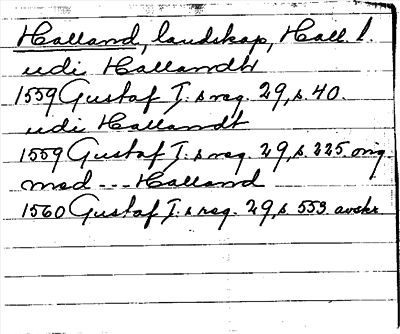 Halland, landskap, Hall l.
udi Hallandh
1559 Gustaf I:s reg. 29, s. 40.
udi Hallandt
1559 Gustaf I:s reg. 29, s. 225. orig.
med --- Halland
1560 Gustaf I:s reg. 29, s. 553. avskr.